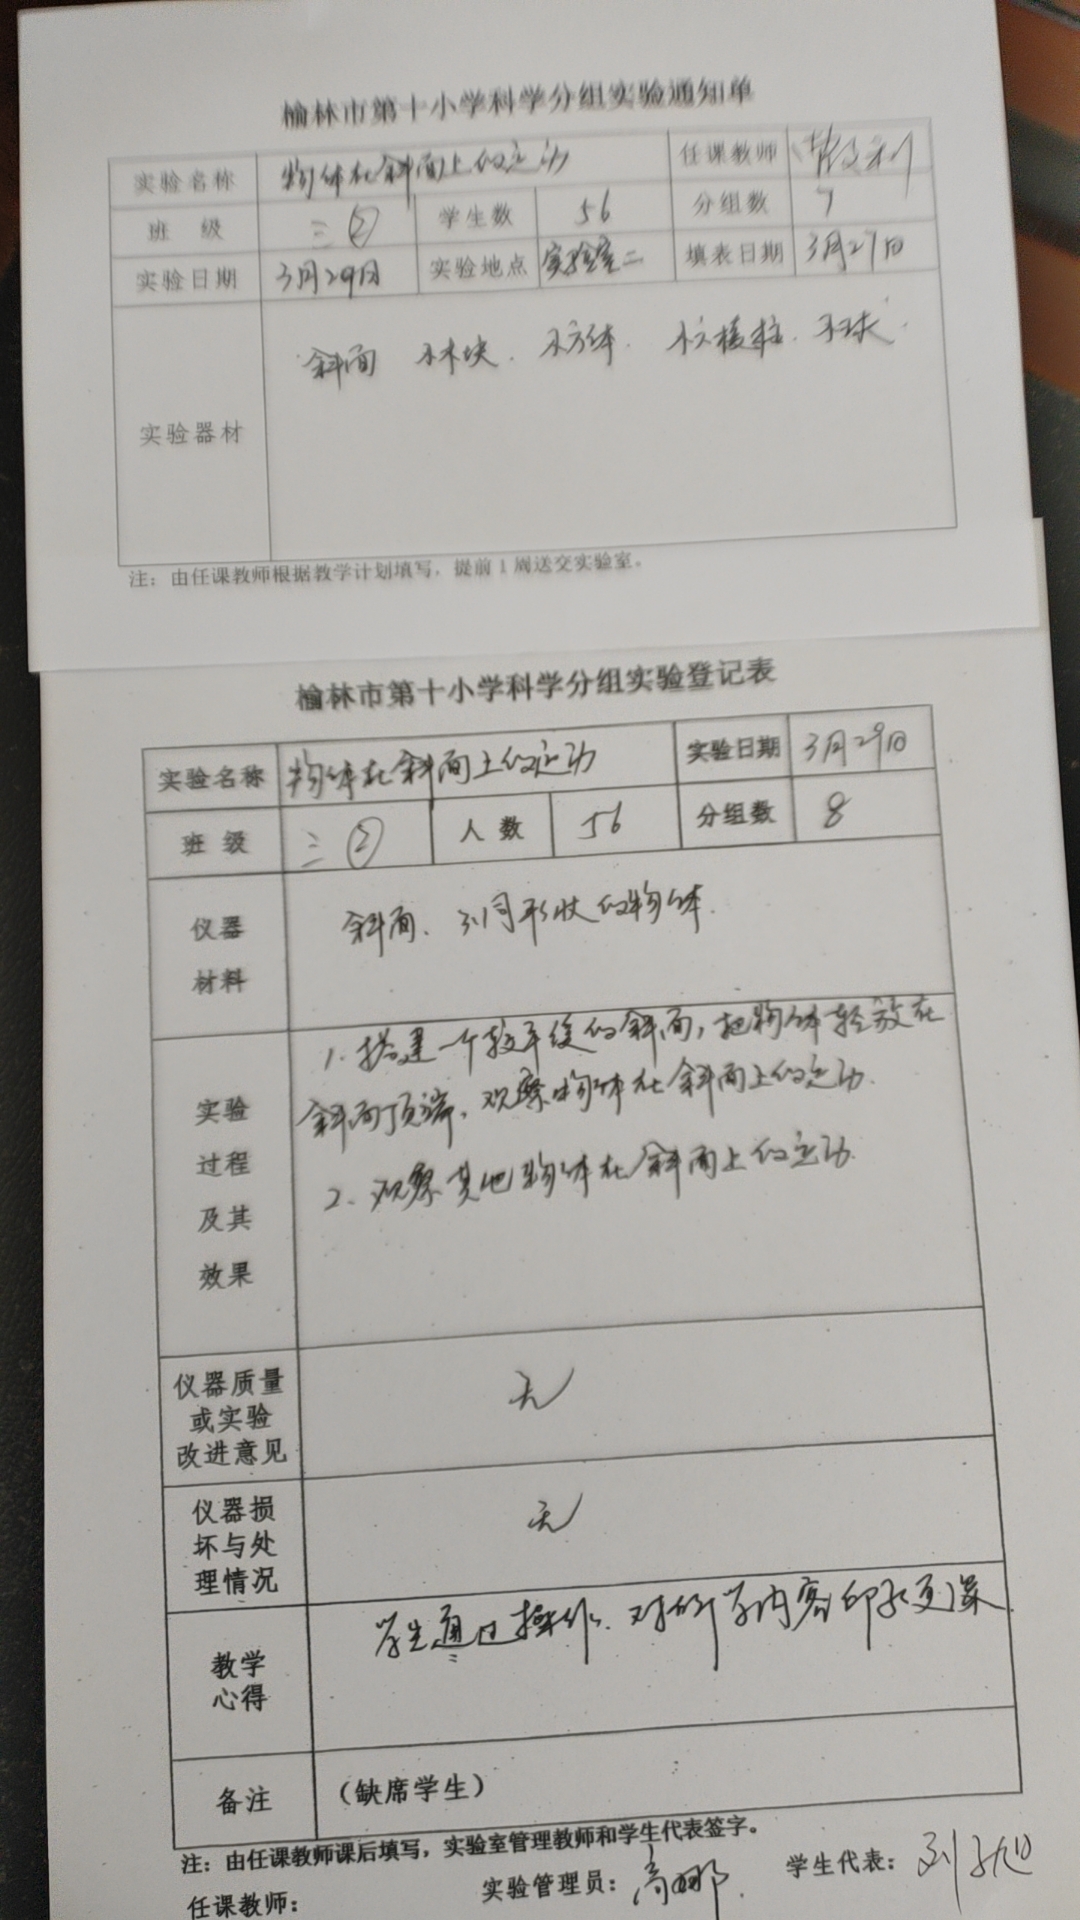 榆林市第十小学科学分组实验通知单
实验名称 物体在斜面上的运动 任课教师
班 级 三② 学生数 56 分组数 7
实验日期 3月29日 实验地点 实验室二 填表日期 3月27日
实验器材 斜面 小木块. 木方体. 木六棱柱. 木球.
注：由任课教师根据教学计划填写，提前1周送交实验室。
榆林市第十小学科学分组实验登记表
实验名称 物体在斜面上的运动 实验日期 3月29日
班 级 三② 人 数 56 分组数 8
仪器
材料
斜面、不同形状的物体.
实验
过程
及其
效果
1. 搭建一个较平缓的斜面，把物体轻放在
斜面顶端，观察物体在斜面上的运动.
2. 观察其他物体在斜面上的运动.
仪器质量
或实验
改进意见
无
仪器损
坏与处
理情况
无
教学
心得
学生通过操作、对所学内容印象更深
备注 （缺席学生）
注：由任课教师课后填写，实验室管理教师和学生代表签字。
任课教师： 实验管理员：高娜. 学生代表：刘子旭